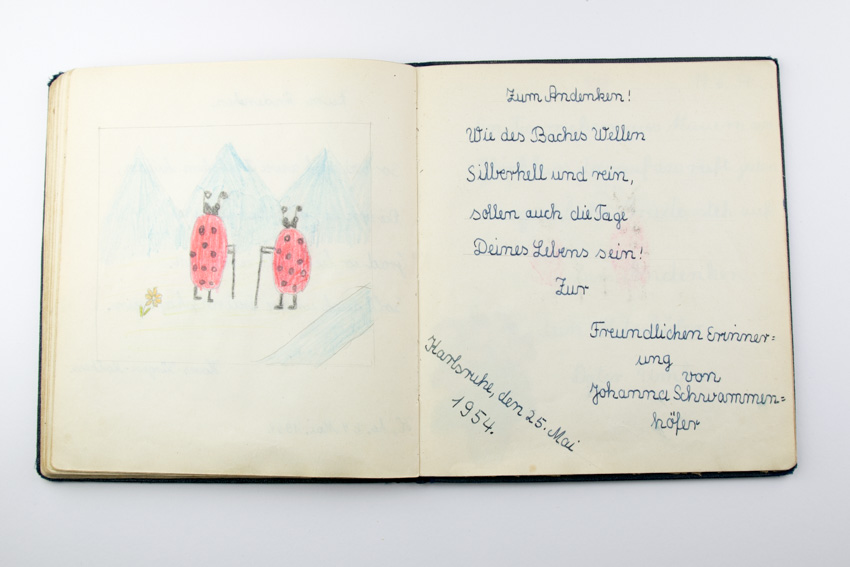 Zum Andenken!
Wie des Baches Wellen
Silberhell und rein,
sollen auch die Tage
Deines Lebens sein!
Zur
Freundlichen Erinner=
ung
von
Johanna Schwammen=
höfer
Karlsruhe, den 25. Mai
1954.